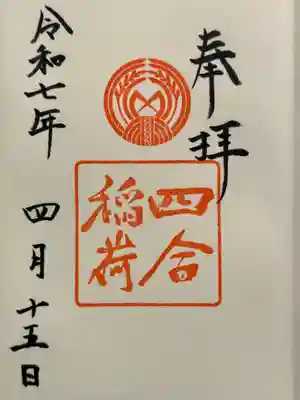 奉拝
四合
稲荷
令和七年
四月
十五日